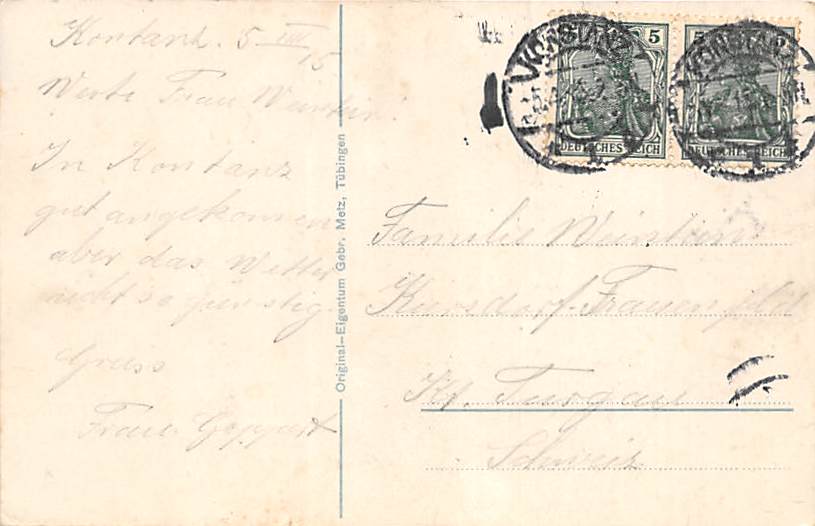 Kontanz. 5 VIII 15
Werte Frau
In Kontanz
gut angekommen
aber das Wetter
nicht so günstig.
Gruss
Frau Geppert
Original-Eigentum Gebr. Metz, Tübingen
KONSTANZ
5
DEUTSCHES REICH
KONSTANZ
5
DEUTSCHES REICH
Familie
Kt. Turgau
Schweiz